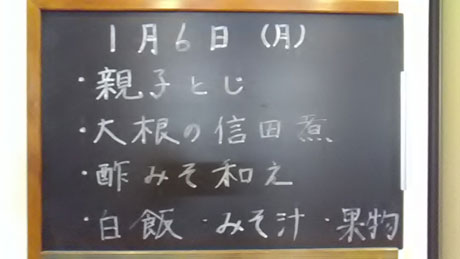 1月6日(月)
・親子とじ
・大根の信田煮
・酢みそ和え
・白飯・みそ汁・果物